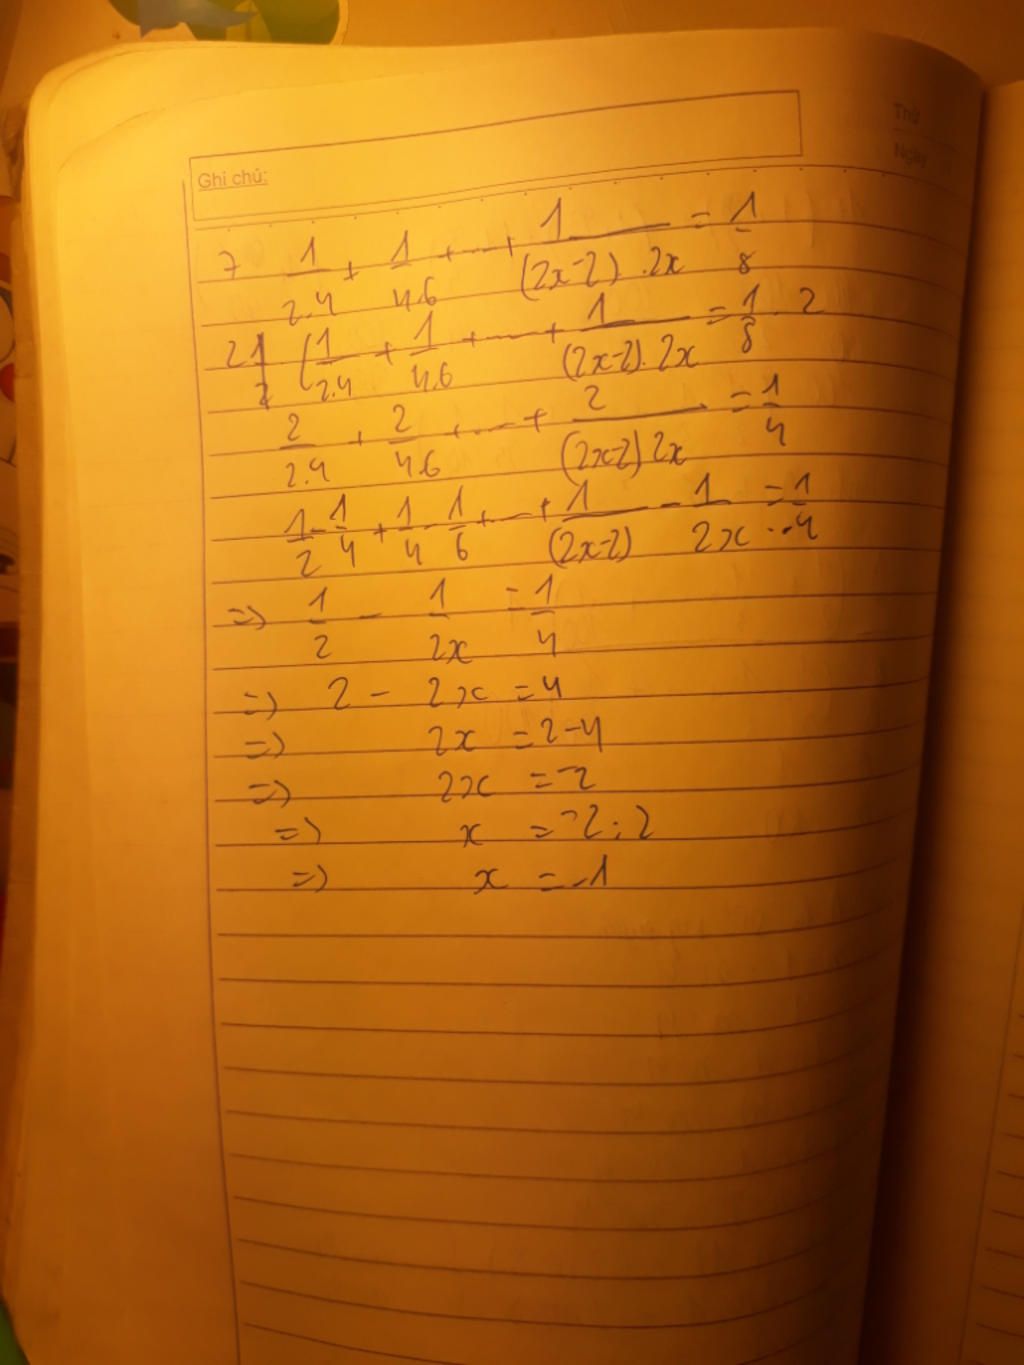 Thứ
Ngày
Ghi chú:
7 1/2.4 + 1/4.6 + ... + 1/(2x-2).2x = 1/8
2 (1/2.4 + 1/4.6 + ... + 1/(2x-2).2x = 1/8 . 2
2/2.4 + 2/4.6 + ... + 2/(2x-2)2x = 1/4
1/2 - 1/4 + 1/4 - 1/6 + ... + 1/(2x-2) - 1/2x = 1/4
=> 1/2 - 1/2x = 1/4
=> 2 - 2x = 4
=> 2x = 2-4
=> 2x = -2
=> x = -2:2
=> x = -1